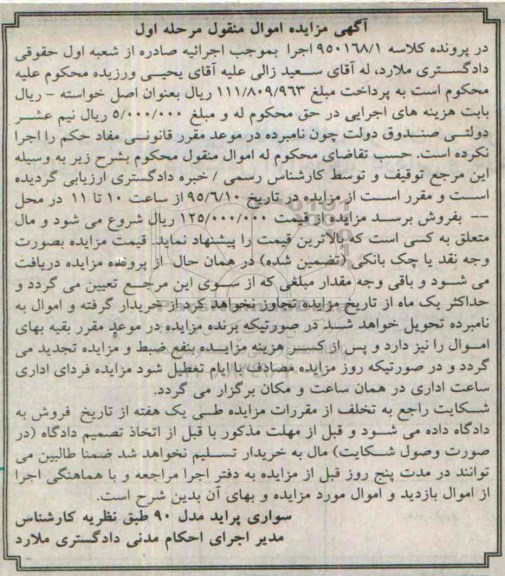 آگهی مزایده اموال منقول مرحله اول
در پرونده کلاسه ۹۵۰۱۶۸/۱ اجرا بموجب اجرائیه صادره از شعبه اول حقوقی
دادگستری ملارد، له آقای سعید زالی علیه آقای یحیی ورزیده محکوم علیه
محکوم است به پرداخت مبلغ ۱۱۱/۸۰۹/۹۶۳ ریال بعنوان اصل خواسته - ریال
بابت هزینه های اجرایی در حق محکوم له و مبلغ ۵/۰۰۰/۰۰۰ ریال نیم عشر
دولتی صندوق دولت چون نامبرده در موعد مقرر قانونی مفاد حکم را اجرا
نکرده است. حسب تقاضای محکوم له اموال منقول محکوم بشرح زیر به وسیله
این مرجع توقیف و توسط کارشناس رسمی / خبره دادگستری ارزیابی گردیده
است و مقرر است از مزایده در تاریخ ۹۵/۶/۱۰ از ساعت ۱۰ تا ۱۱ در محل
-- بفروش برسد مزایده از قیمت ۱۲۵/۰۰۰/۰۰۰ ریال شروع می شود و مال
متعلق به کسی است که بالاترین قیمت را پیشنهاد نماید. قیمت مزایده بصورت
وجه نقد یا چک بانکی (تضمین شده) در همان حال از برونده مزایده دریافت
می شود و باقی وجه مقدار مبلغی که از سوی این مرجع تعیین می گردد و
حداکثر یک ماه از تاریخ مزایده تجاوز نخواهد کرد از خریدار گرفته و اموال به
نامبرده تحویل خواهد شد در صورتیکه برنده مزایده در موعد مقرر بقیه بهای
اموال را نپر دازد و پس از کسر هزینه مزایده بنفع ضبط و مزایده تجدید می
گردد و در صورتیکه روز مزایده مصادف با ایام تعطیل شود مزایده فردای اداری
ساعت اداری در همان ساعت و مکان برگزار می گردد.
شکایت راجع به تخلف از مقررات مزایده طی یک هفته از تاریخ فروش به
دادگاه داده می شود و قبل از مهلت مذکور با قبل از اتخاذ تصمیم دادگاه (در
صورت وصول شکایت) مال به خریدار تسلیم نخواهد شد ضمنا طالبین می
توانند در مدت پنج روز قبل از مزایده به دفتر اجرا مراجعه و با هماهنگی اجرا
از اموال بازدید و اموال مورد مزایده و بهای آن بدین شرح است.
سواری پراید مدل ۹۰ طبق نظریه کارشناس
مدیر اجرای احکام مدنی دادگستری ملارد